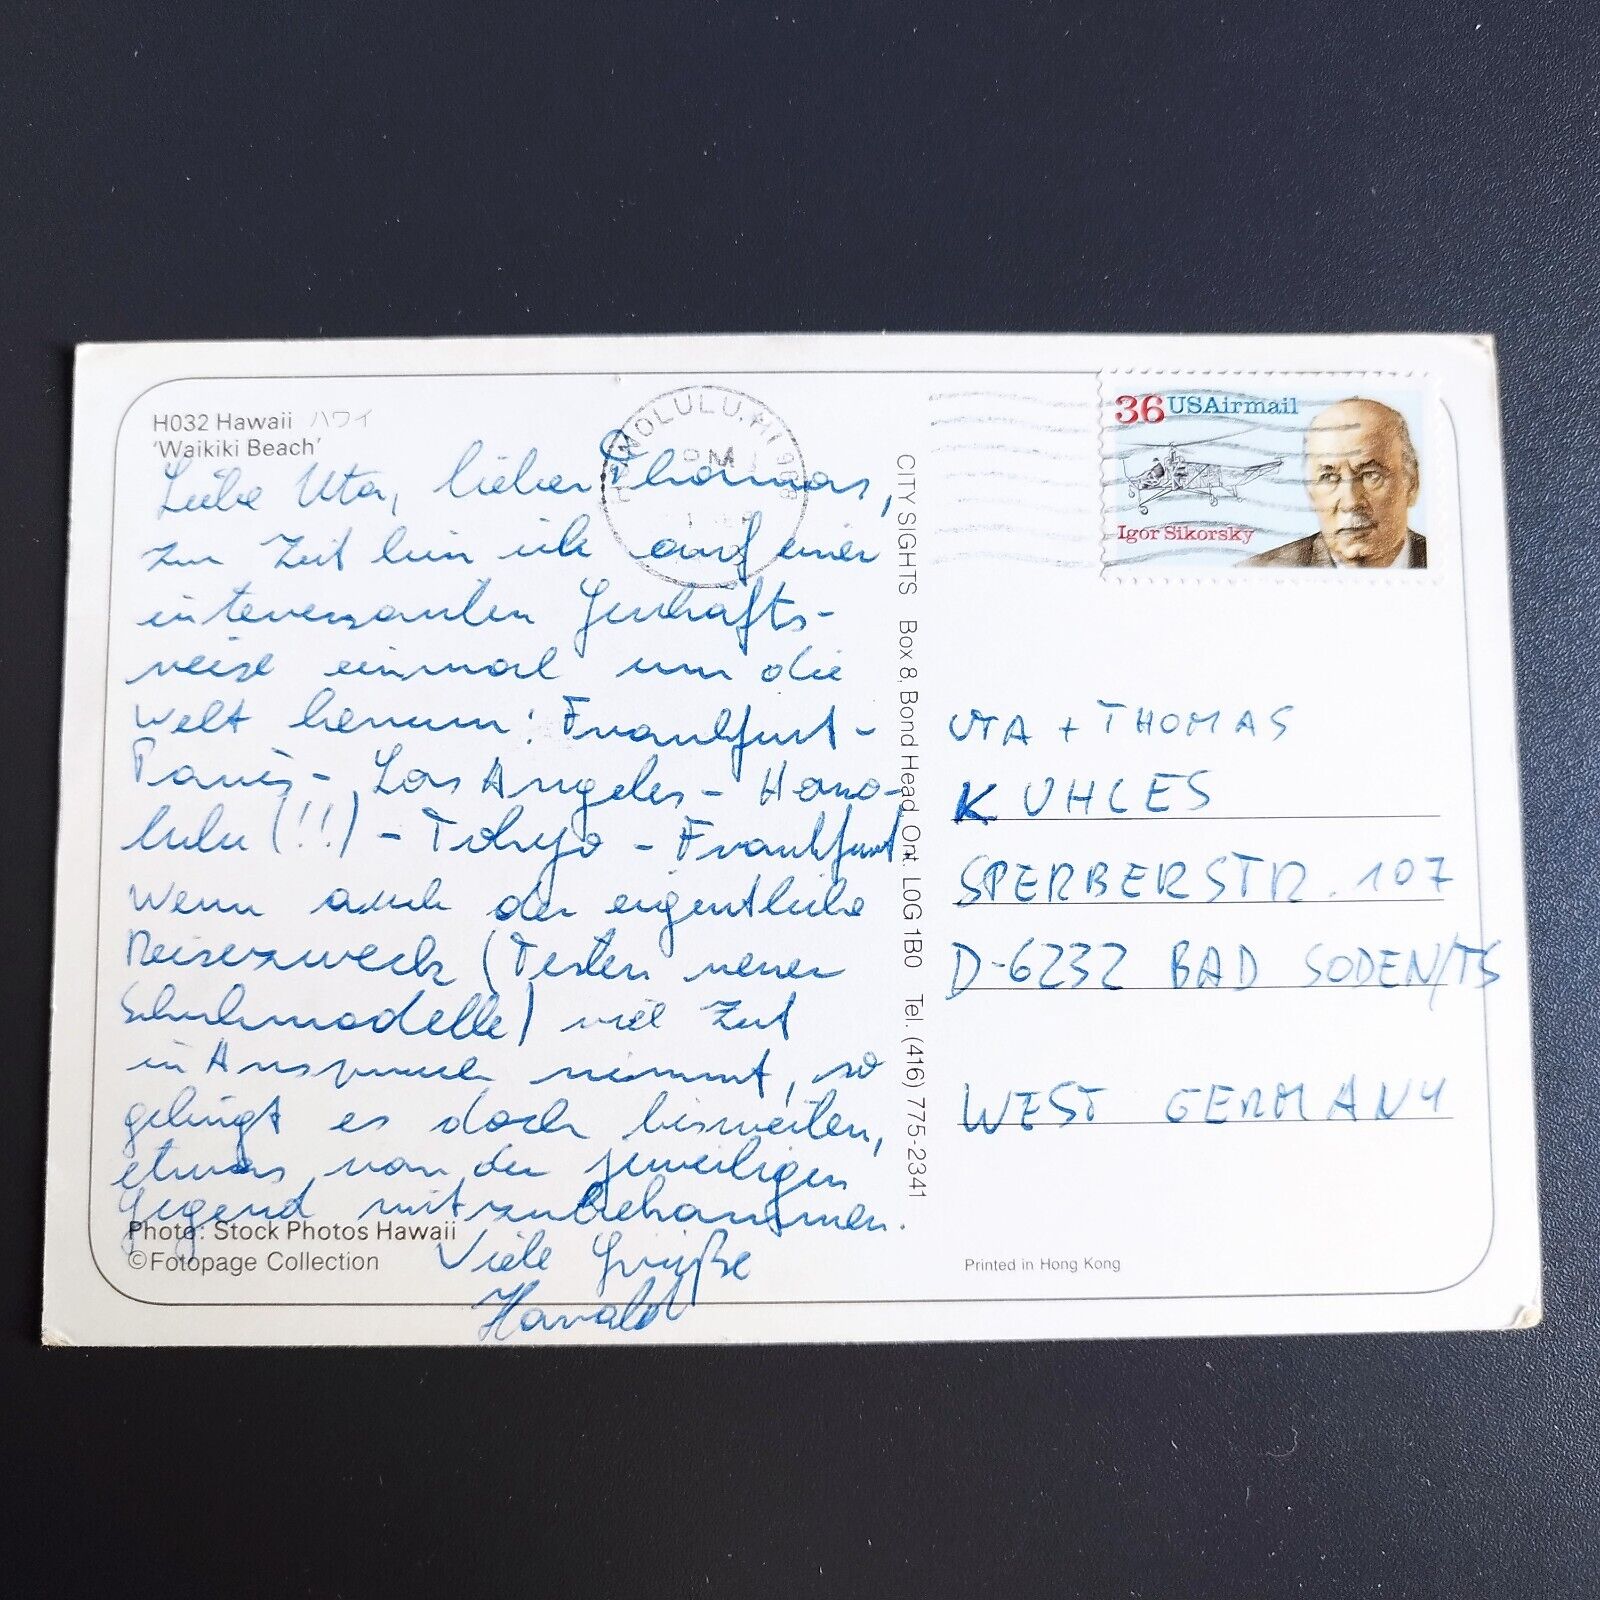 H032 Hawaii ハワイ
'Waikiki Beach'
Liebe Uta, lieber Thomas,
zur Zeit bin ich auf einer
interessanten Geschäfts-
reise einmal um die
Welt herum: Frankfurt-
Paris - Los Angeles - Hono-
lulu (!!) - Tokyo - Frankfurt.
Wenn auch der eigentliche
Reisezweck (Testen neuer
Schuhmodelle) viel Zeit
in Anspruch nimmt, so
gelingt es doch bisweilen,
etwas von der jeweiligen
Gegend mitzubekommen.
Viele Grüße
Harald
Photo: Stock Photos Hawaii
©Fotopage Collection
CITY SIGHTS Box 8, Bond Head, Ont. L0G 1B0 Tel. (416) 775-2341
HONOLULU, HI 968
PM
36 USAirmail
Igor Sikorsky
UTA + THOMAS
KUHLES
SPERBERSTR. 107
D-6232 BAD SODEN/TS
WEST GERMANY
Printed in Hong Kong